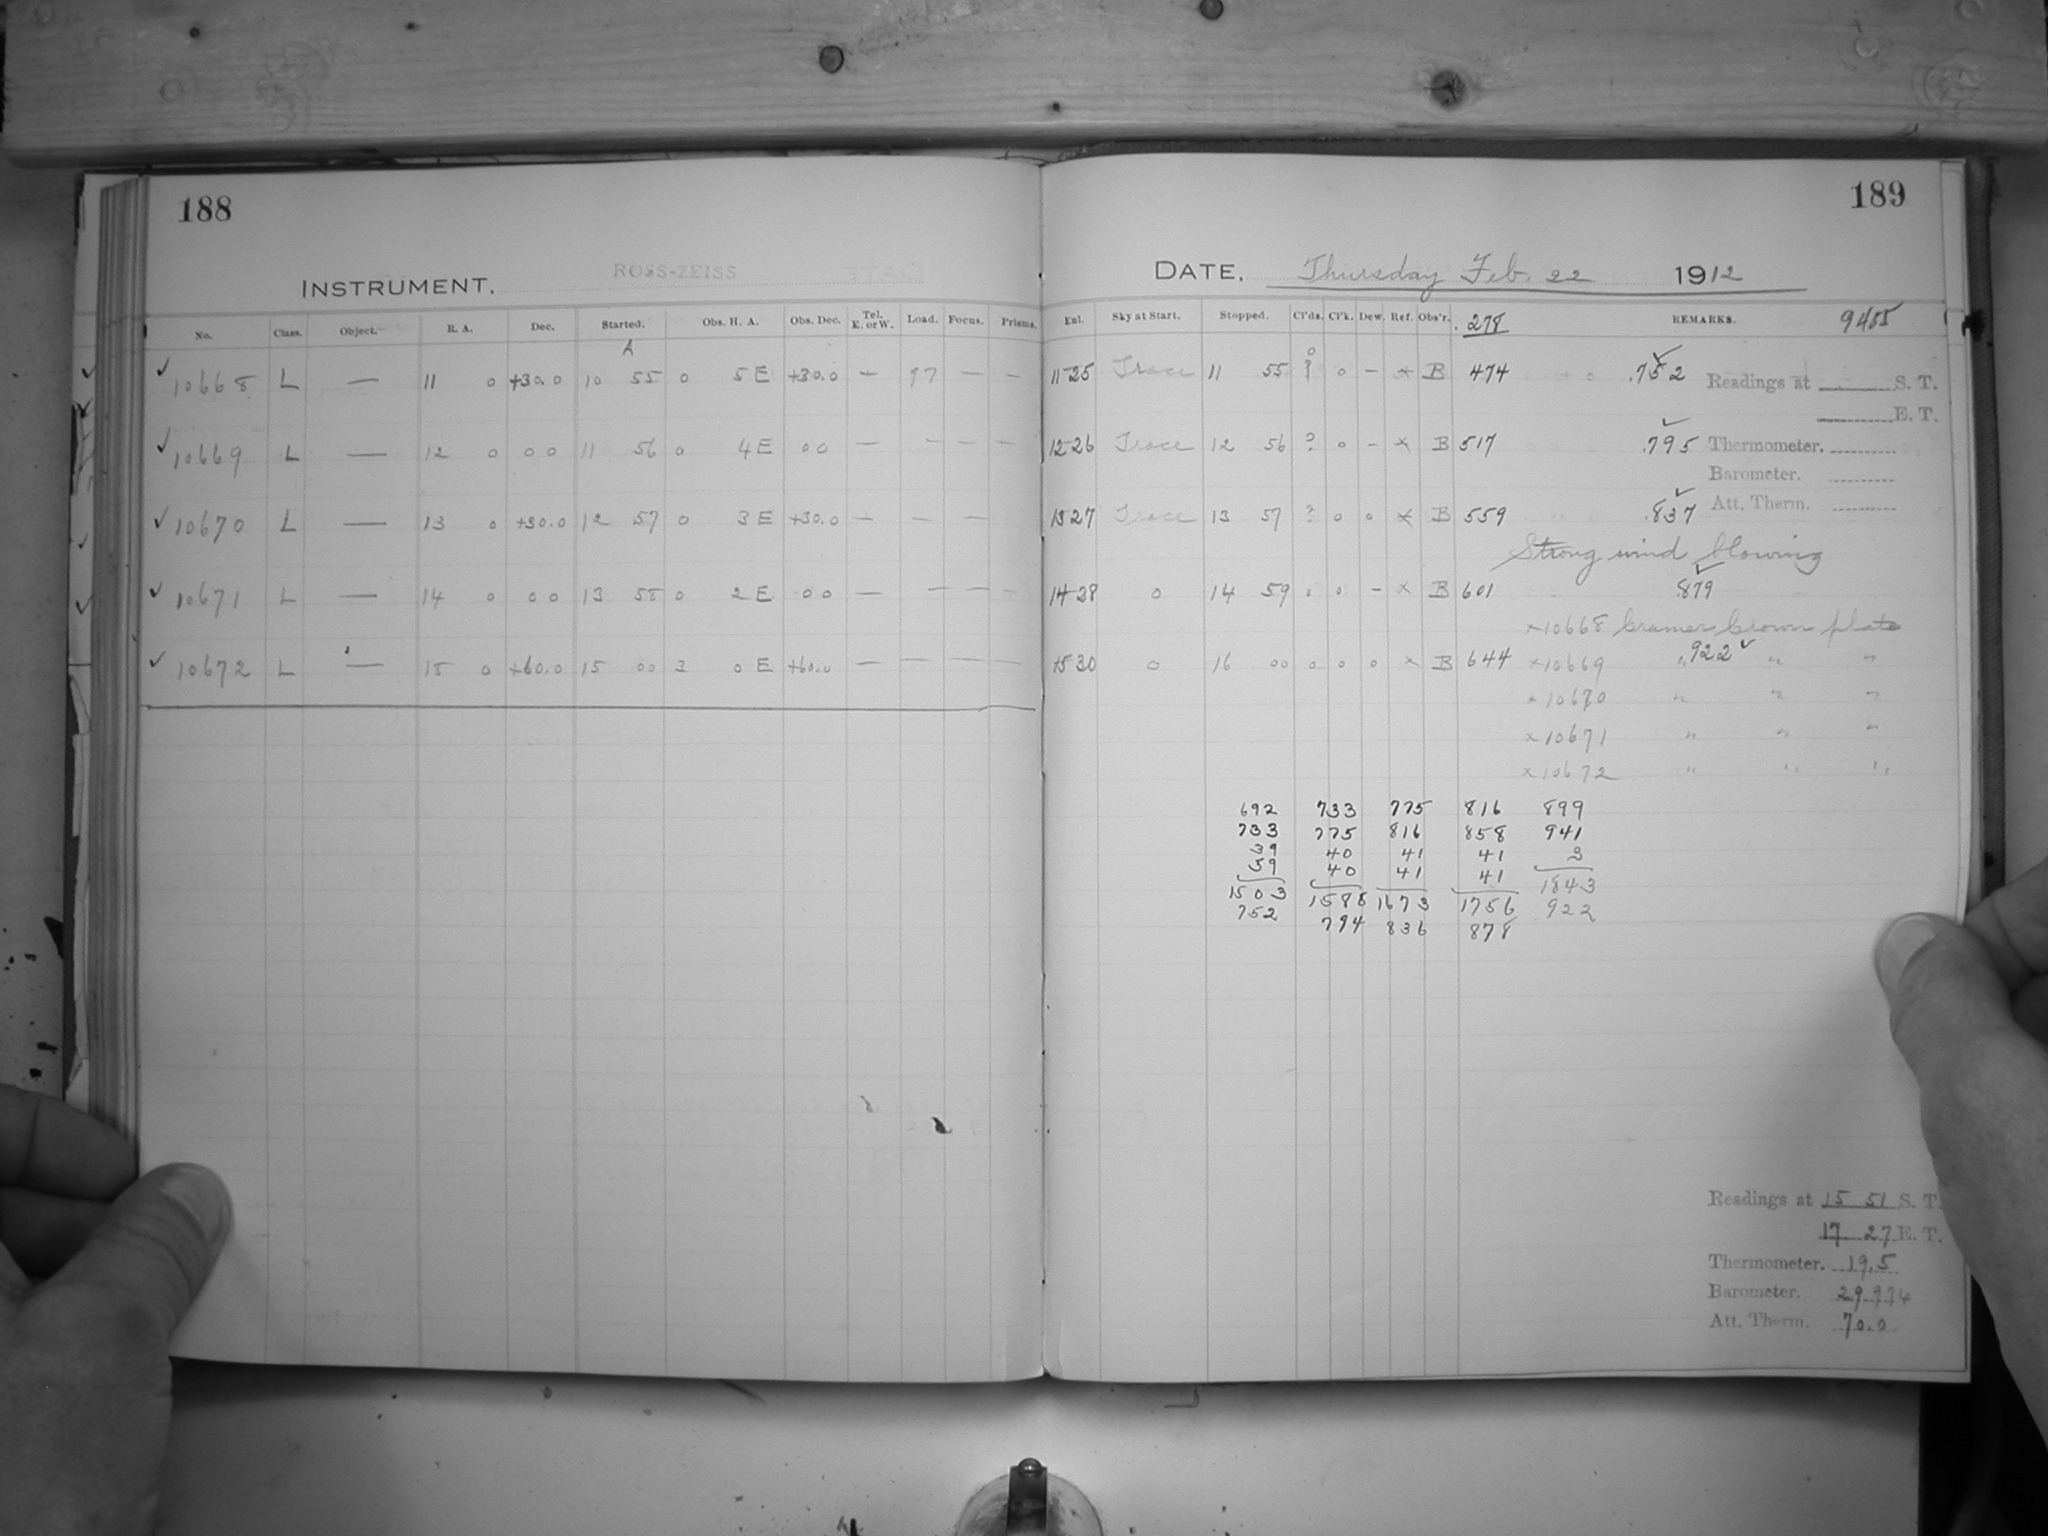 188
INSTRUMENT. ROSS-ZEISS
No. Class. Object. R. A. Dec. Started. Obs. H. A. Obs. Dec. Tel. E. or W. Load. Focus. Prisms.
A
✓ 10668 L — 11 0 +30.0 10 55 0 5 E +30.0 — 97 — —
✓ 10669 L — 12 0 0 0 11 56 0 4 E 0 0 — — — —
✓ 10670 L — 13 0 +30.0 12 57 0 3 E +30.0 — — —
✓ 10671 L — 14 0 0 0 13 58 0 2 E 0 0 — — — —
✓ 10672 L — 15 0 +60.0 15 00 3 0 E +60.0 — — — —
189
DATE. Thursday Feb. 22 1912
Enl. Sky at Start. Stopped. Cl'ds. Cl'k. Dew. Ref. Obs'r. .278 REMARKS. 9455
11 25 Trace 11 55 ? 0 – x B 474 .752 ✓
Readings at S. T.
E. T.
12 26 Trace 12 56 ? 0 – x B 517 .795 ✓
Thermometer.
Barometer.
Att. Therm.
13 27 Trace 13 57 ? 0 0 x B 559 .837 ✓
Strong wind blowing
14 28 0 14 59 0 0 – x B 601 .879 ✓
x 10668 Cramer Crown plate
15 30 0 16 00 0 0 0 x B 644 x 10669 " 922 ✓ " "
x 10670 " " "
x 10671 " " "
x 10672 " " "
692 733 775 816 899
733 775 816 858 941
39 40 41 41 3
39 40 41 41 1843
1503 1588 1673 1756 922
752 794 836 878
Readings at 15 51 S. T.
17 27 E. T.
Thermometer. 19.5
Barometer. 29.974
Att. Therm. 70.0